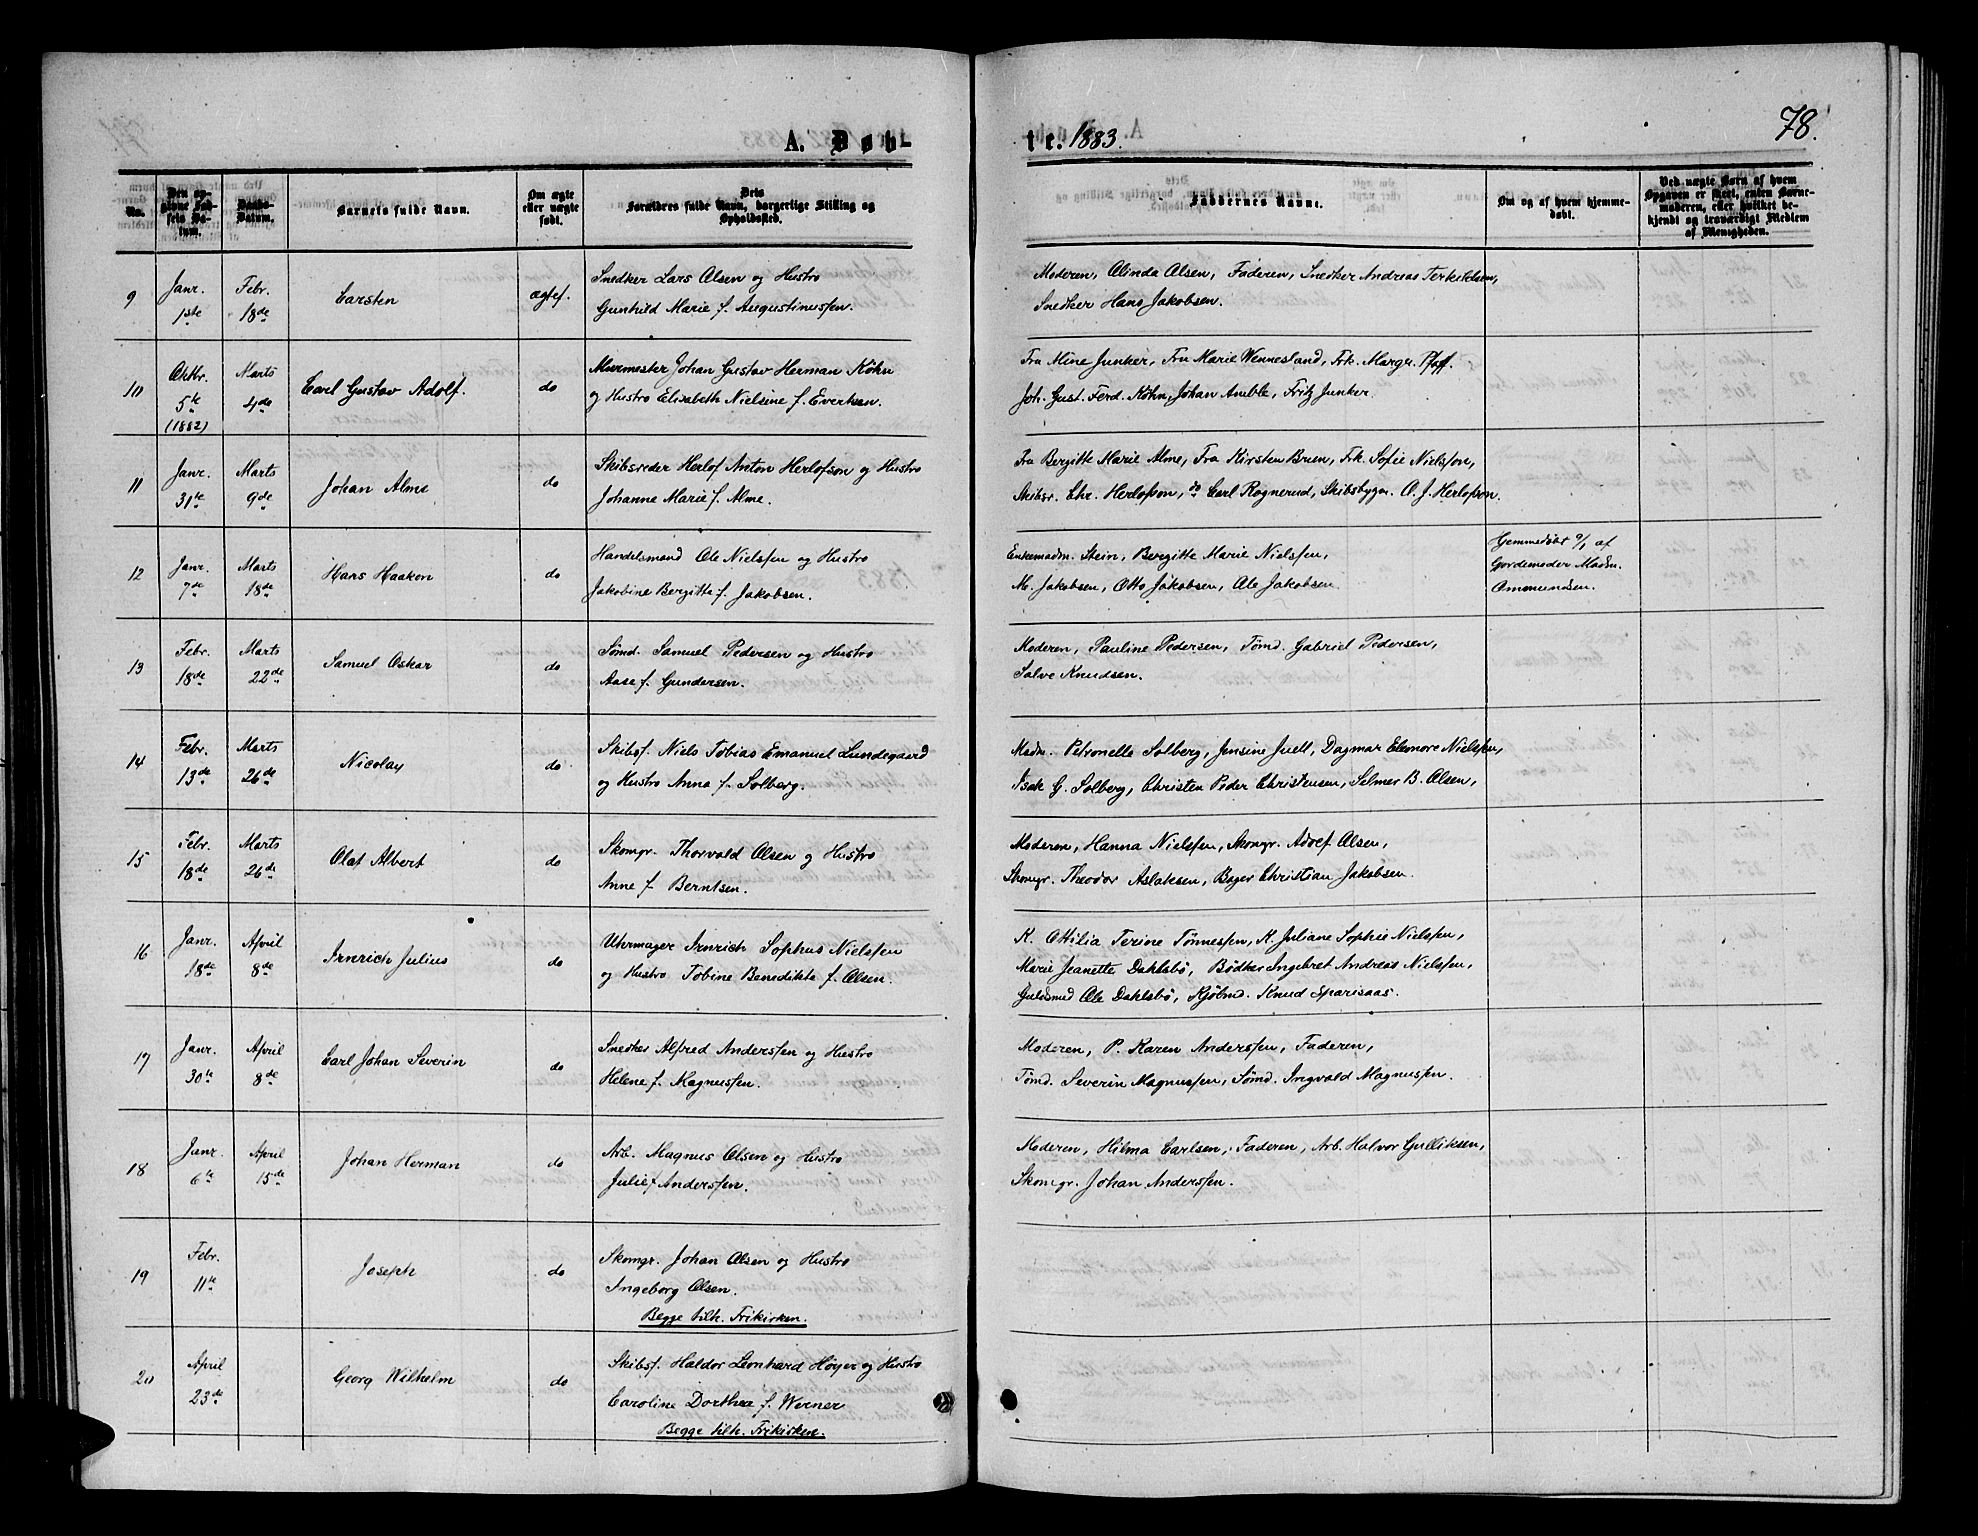 A. Døbte. 1883.
78.
No.
Den opgivne Fødsels Datum.
Daabs-Datum.
Barnets fulde Navn.
Om ægte eller uægte født.
Dets Forældres fulde Navn, borgerlige Stilling og Opholdssted.
Faddernes Navne.
Om og af hvem hjemmedøbt.
Ved uægte Børn af hvem Opgaven er skeet, enten Barnemoderen, eller hvilket bekjendt og troværdigt Medlem af Menigheden.
9 Janr. 1ste Febr. 18de Carsten ægtef.
Snedker Lars Olsen og Hustro
Gunhild Marie f. Augustinussen.
Moderen, Olinda Olsen, Faderen, Snedker Andreas Terkildsen,
Snedker Hans Jakobsen.
10 Oktbr. 5te (1882) Marts 4de Carl Gustav Adolf. do
Murmester Johan Gustav Herman Köhn
og Hustro Elisabeth Nielsine f. Evertsen.
Fru Mine Junker, Fru Marie Wennesland, Frk. Margr. Pfaff.
Joh. Gust. Ferd. Köhn, Johan Anuble, Fritz Junker.
11 Janr. 31te Marts 9de Johan Alme do
Skibsreder Herlof Anton Herlofson og Hustro
Johanne Marie f. Alme.
Fru Bergitte Marie Alme, Fru Kirsten Brun, Frk. Sofie Nielsson,
Skibsr. Chr. Herlofson, do Carl Rognerud, Skibsbygr. O. J. Herlofson.
12 Janr. 7de Marts 18de Hans Haakon do
Handelsmand Ole Nielssen og Hustro
Jakobine Bergitte f. Jakobsen.
Enkemadm. Stein, Beregitte Marie Nielssen,
M. Jakobsen, Otto Jakobsen, Ole Jakobsen
Hjemmedøbt 9/1 af
Gjordemoder Madm.
Ommundsen.
13 Febr. 18de Marts 22de Samuel Oskar do
Sømd. Samuel Pedersen og Hustro
Aase f. Gundersen.
Moderen, Pauline Pedersen, Tømd. Gabriel Pedersen,
Salve Knudsen.
14 Febr. 13de Marts 26de Nicolay do
Skibsf. Niels Tobias Emanuel Lundegaard
og Hustro Anna f. Solberg.
Madm. Petronelle Solberg, Jensine Juell, Dagmar Eleonore Nielssen,
Isak G. Solberg, Christen Peder Christensen, Selmer B. Olsen,
15 Febr. 18de Marts 26de Olaf Albert do
Skomgr. Thorvald Olsen og Hustro
Anne f. Berntsen.
Moderen, Hanna Nielssen, Skomgr. Adolf Olsen,
Skomgr. Theodor Aslaksen, Bager Christian Jakobsen.
16 Janr. 18de April 8de Irnrich Julius do
Uhrmager Irnrich Sophus Nielssen
og Hustro Tobine Benedikte f. Olsen.
K. Ottilia Terine Tønnessen, K. Juliane Sophie Nielssen,
Marie Jeanette Dahlsbö, Bødker Ingebret Andreas Nielssen,
Guldsmed Ole Dahlsbö, Kjöbmd. Knud Sparisaas.
17 Janr. 30te April 8de Carl Johan Severin do
Snedker Alfred Anderssen og Hustro
Helene f. Magnussen.
Moderen, P. Karen Anderssen, Faderen,
Tømd. Severin Magnussen, Sømd. Ingvald Magnussen.
18 Janr. 6te April 15de Johan Herman do
Arb. Magnus Olsen og Hustro
Julie f. Anderssen.
Moderen, Hilma Carlsen, Faderen, Arb. Halvor Gulliksen,
Skomgr. Johan Anderssen.
19 Febr. 11te Joseph do
Skomgr. Johan Olsen og Hustro
Ingeborg Olsen.
Begge tilh. Frikirken.
20 April 23de Georg Wilhelm do
Skibsf. Haldor Leonhard Höyer og Hustro
Caroline Dorthea f. Werner
Begge tilh. Frikirken.